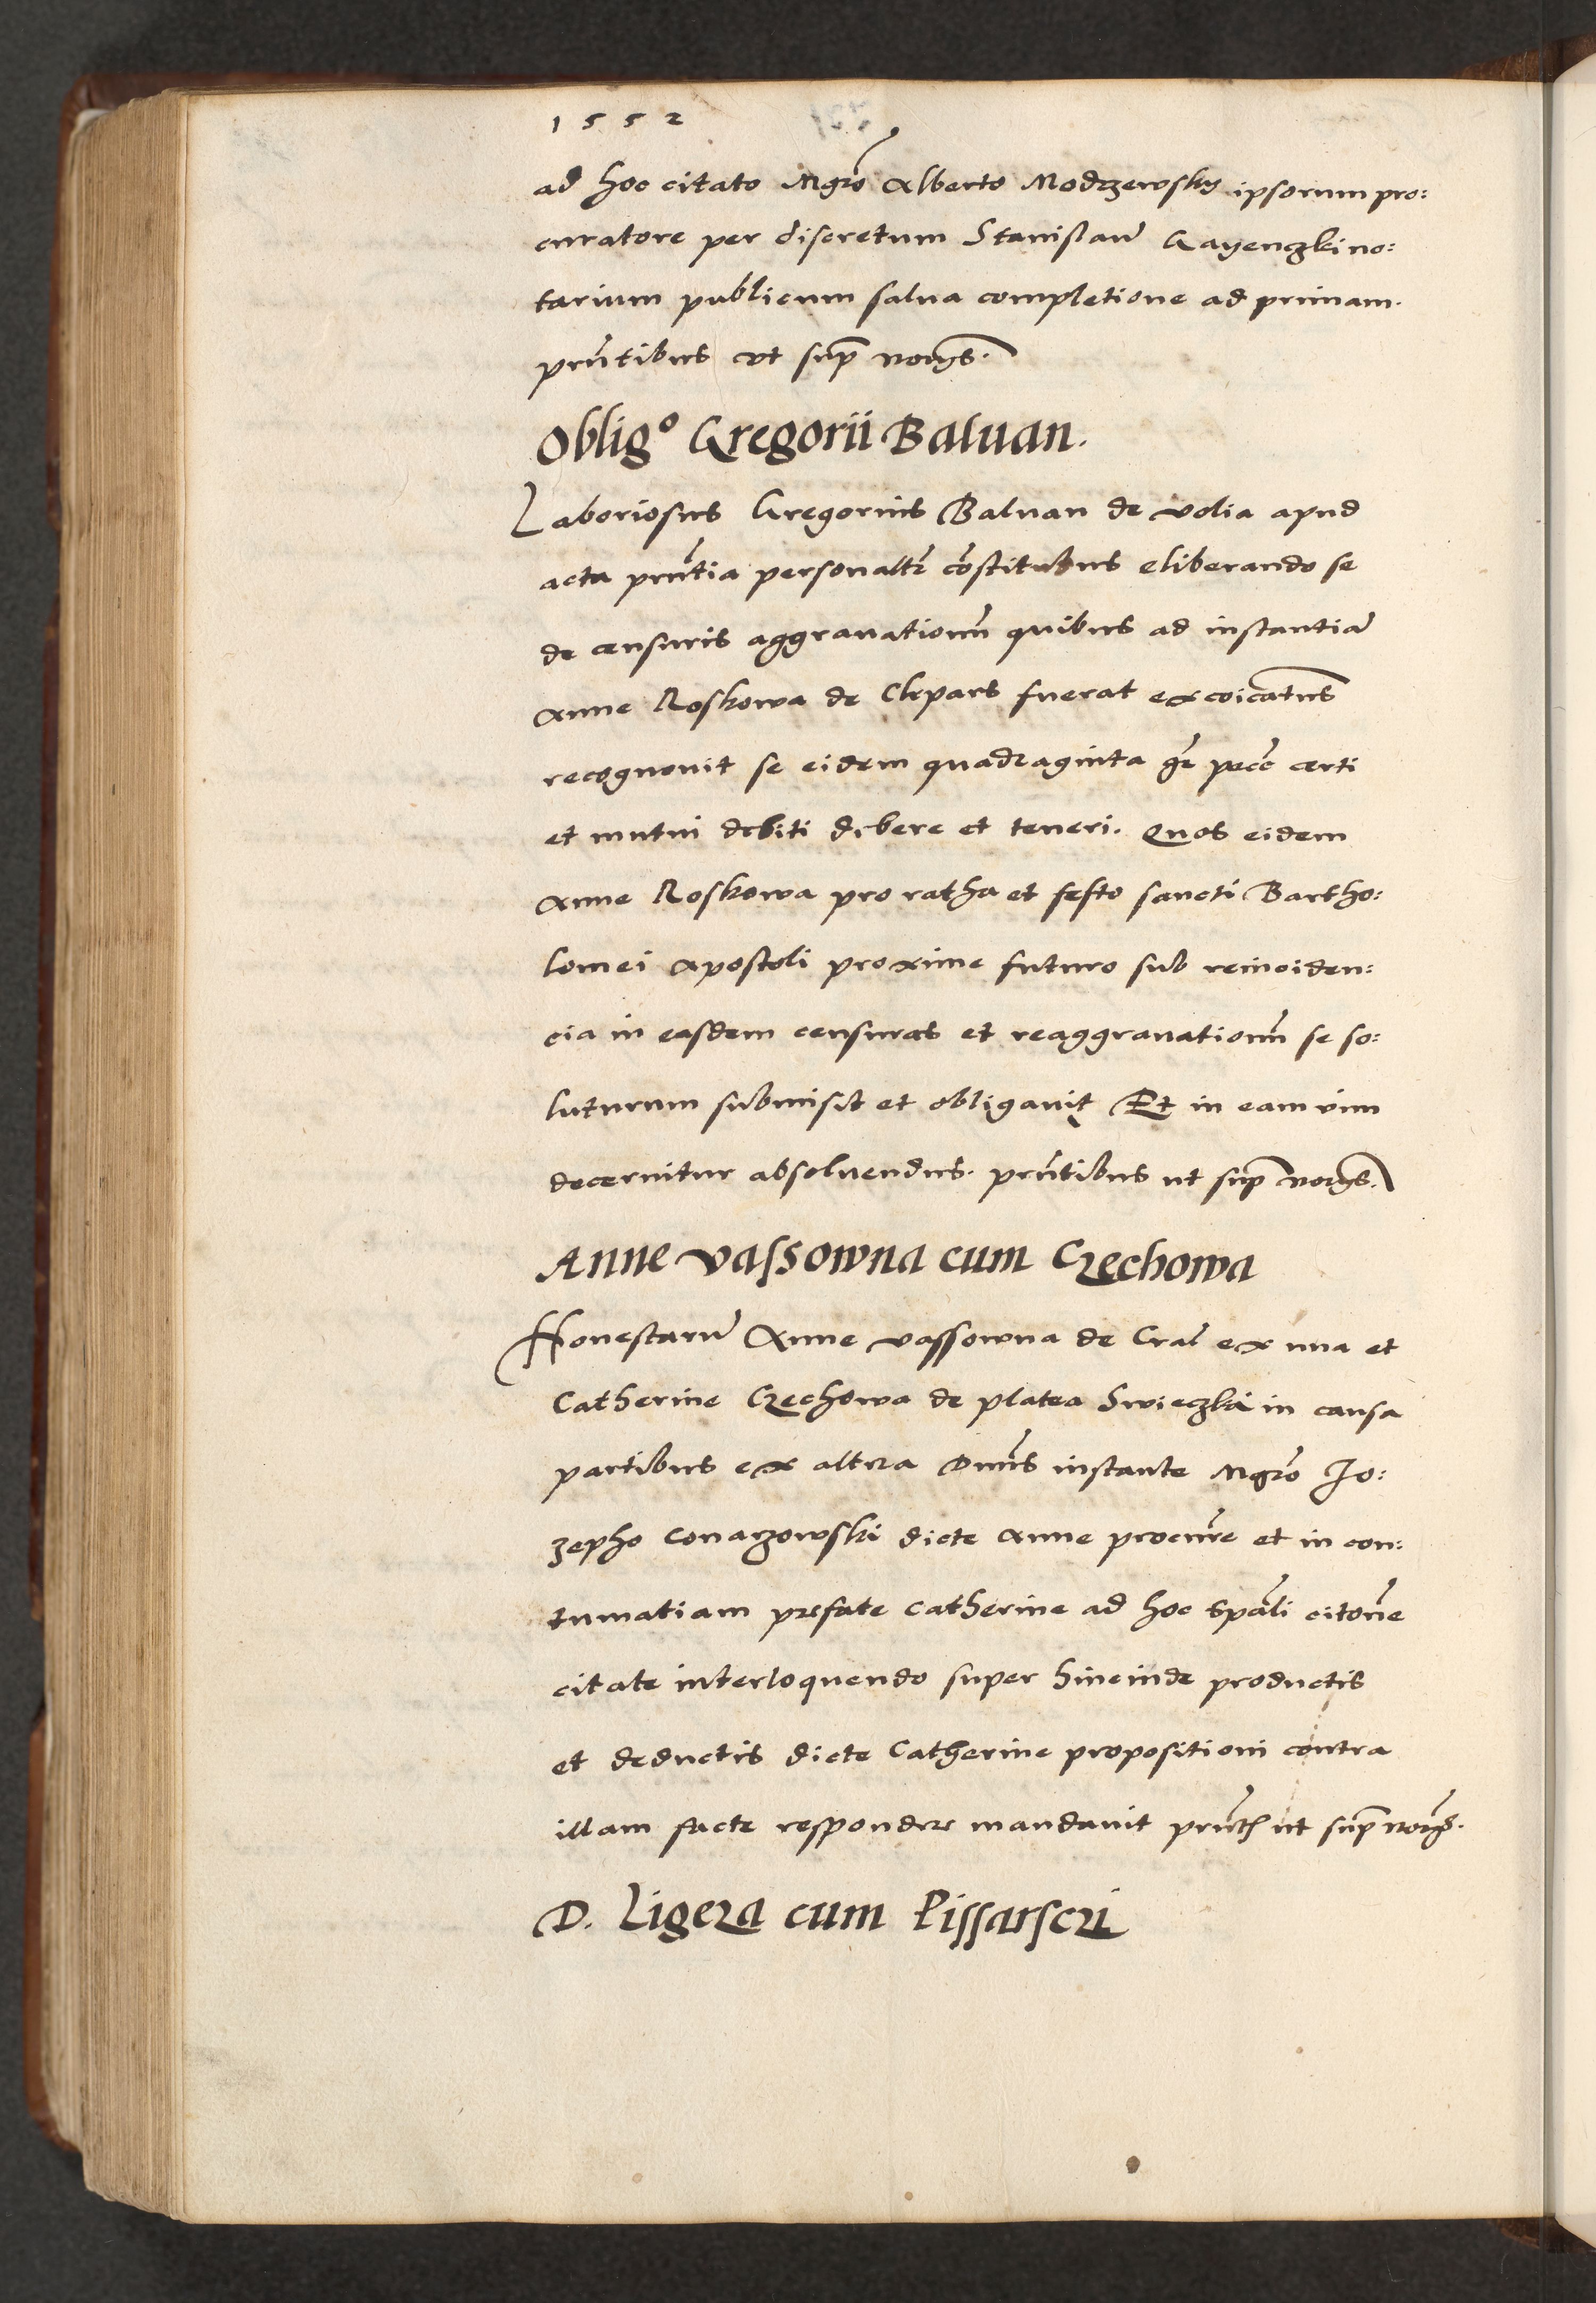 1552
ad hoc citato Mgrō Alberto Modrzewsky ipsorum pro:
curatore per discretum Stanislaū Gayenczki no:
tarium publicum salua completione ad primam.
pn̄tibus vt sup̄
Oblig° Gregorii Baluan.
Laboriosus Gregorius Baluan de volia apud
acta pn̄tia personalit̄ cōstitutus eliberando se
de censuris aggrauationū quibus ad instantiā
Anne Roskowa de Clepars fuerat excoīcatus
recognouit se eidem quadraginta gr̄ pecc̄ certi
et mutui debiti debere et teneri. Quos eidem
Anne Roskowa pro ratha et festo sancti Bartho:
lomei Apostoli proxime futuro sub reinciden:
cia in easdem censuras et reaggrauationū se so:
luturum submisit et obligauit Et in eam vim
decernitur absoluendus. pn̄tibus ut sup̄
Anne vassowna cum Czechowa
Honestarū Anne vassowna de Crac̄ ex una et
Catherine Czechowa de platea Swieczka in causa
partibus ex altera Dn̄us instante Mgrō Jo:
zepho Conarzowski dicte Anne procur̄e et in con:
tumatiam prefate Catherine ad hoc sp̄ali citon̄e
citate interloquendo super hincinde productis
et deductis dicte Catherine propositioni contra
illam facte respondere mandauit pn̄t ut sup̄
D. Ligeza cum Pissarscri